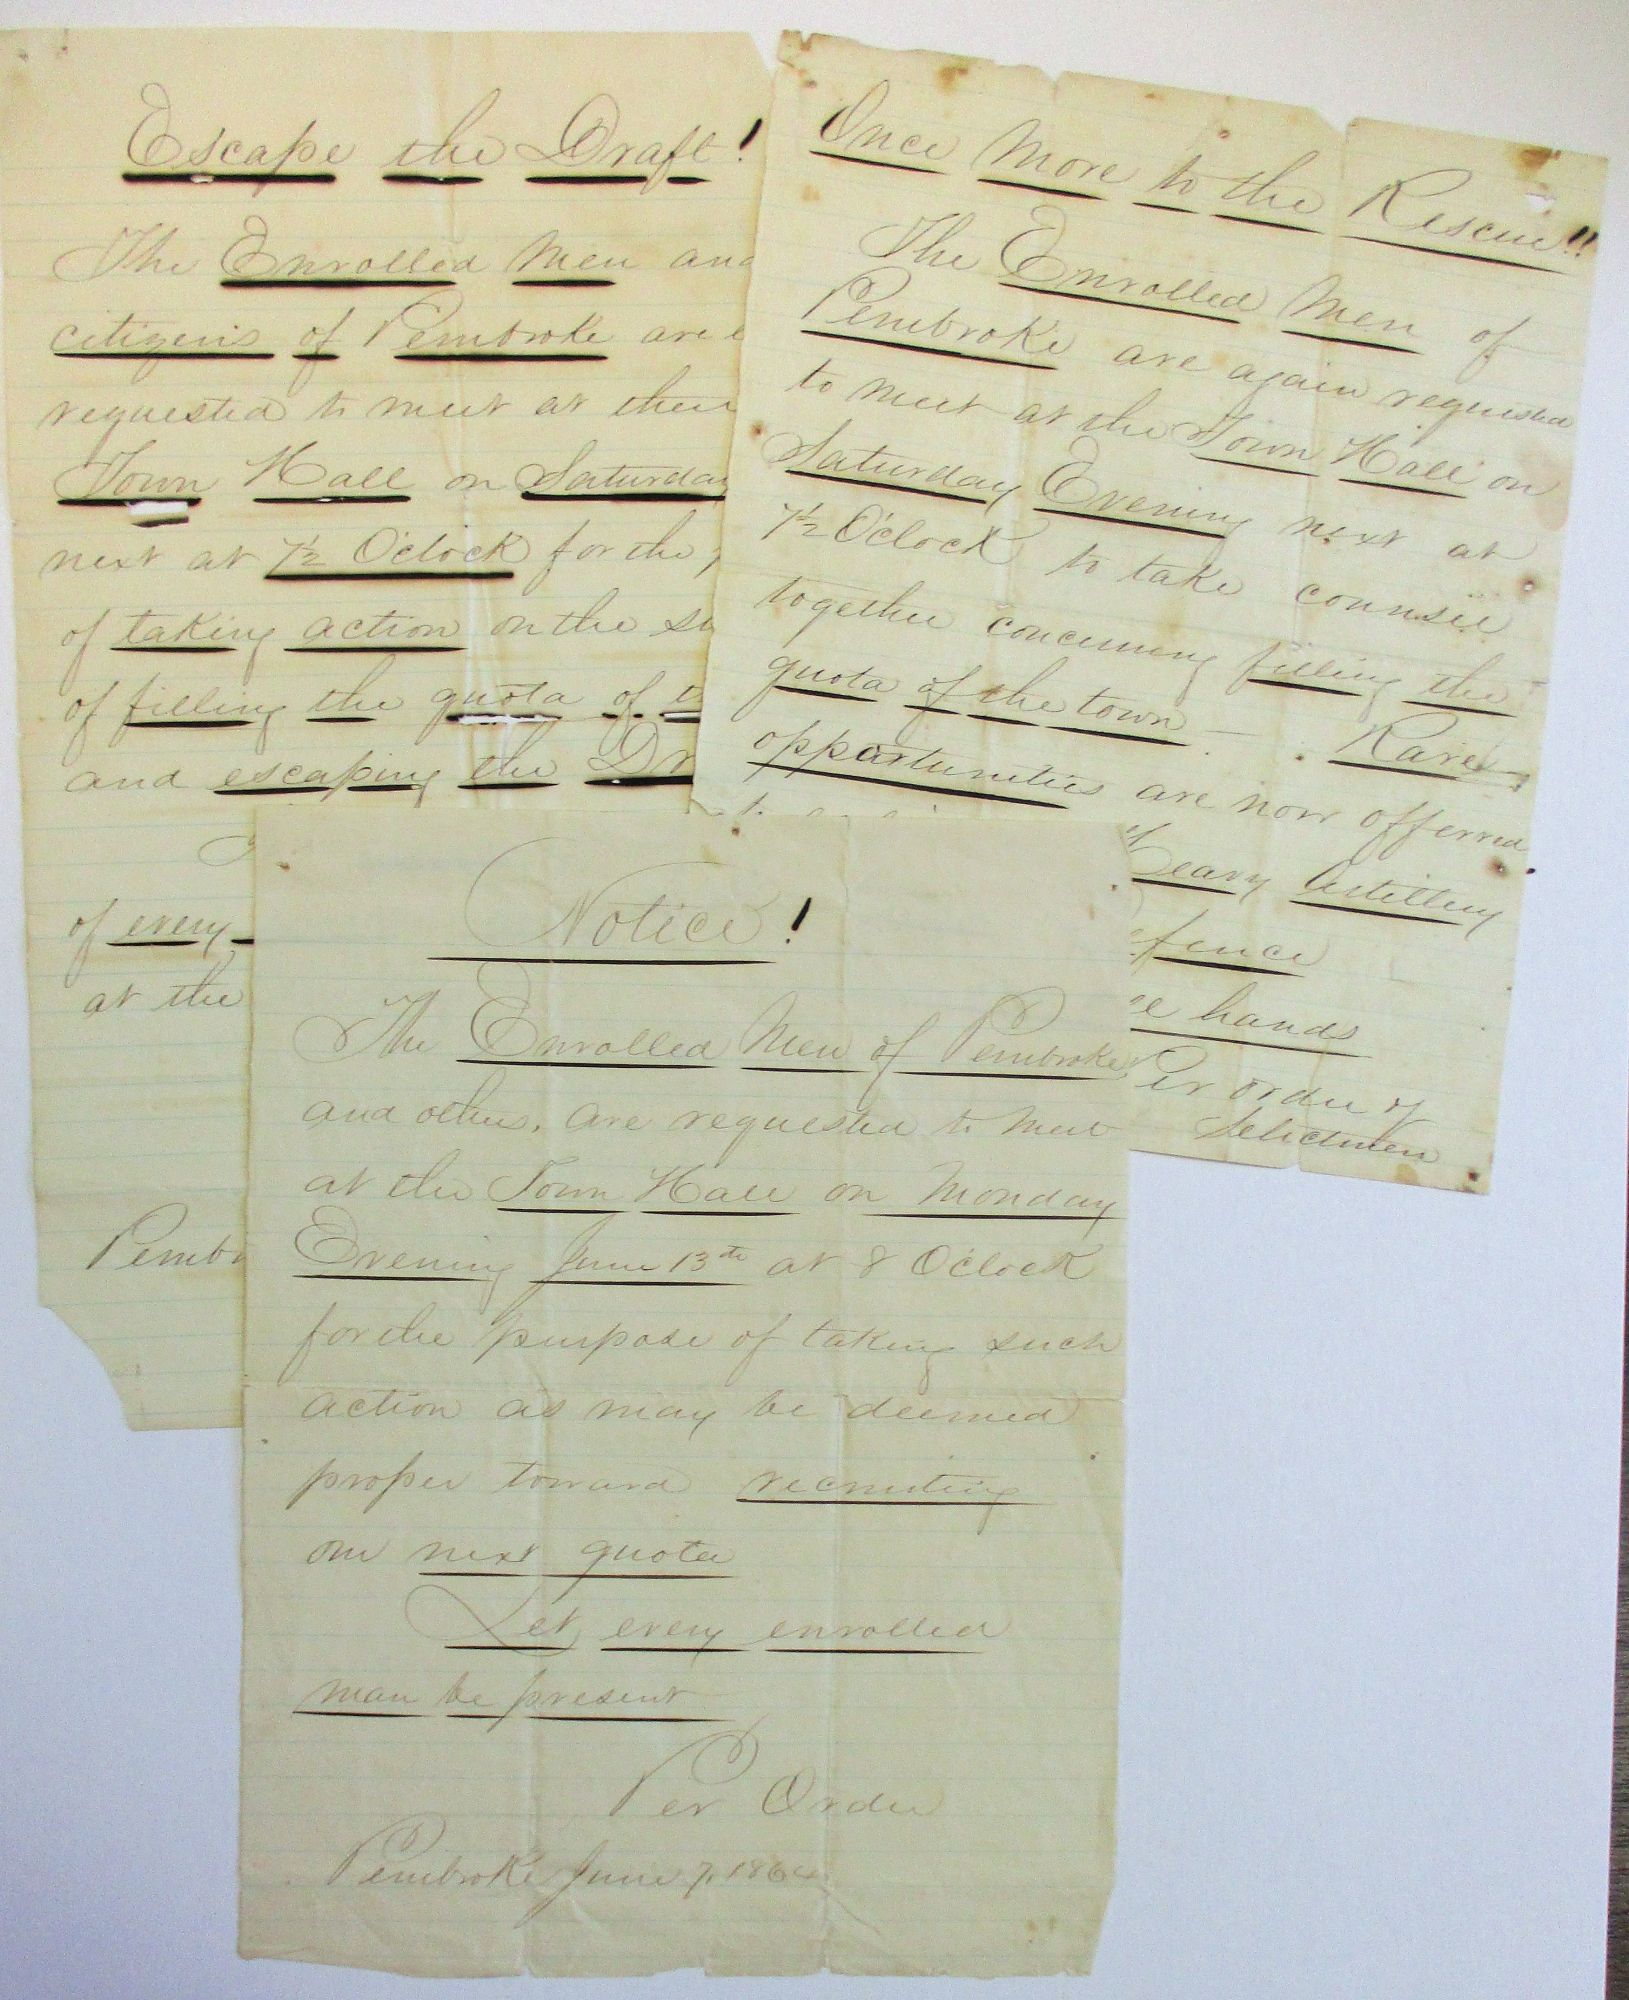 Escape the Draft!
The Enrolled Men and
citizens of Pembroke are
requested to meet at their
Town Hall on Saturday
next at 7½ O'clock for the
of taking action on the
of filling the quota of
and escaping the
of every
at the
Once More to the Rescue!!
The Enrolled Men of
Pembroke are again requested
to meet at the Town Hall on
Saturday Evening next at
7½ O'clock to take counsel
together concerning filling the
quota of the town. Rare
opportunities are now offerred
Heavy Artillery
hands
Per order of
Selectmen
Notice!
The Enrolled Men of Pembroke
and others, are requested to meet
at the Town Hall on Monday
Evening June 13th at 8 O'clock
for the purpose of taking such
action as may be deemed
proper toward recruiting
our next quota
Let every enrolled
man be present
Per Order
Pembroke June 7, 1864